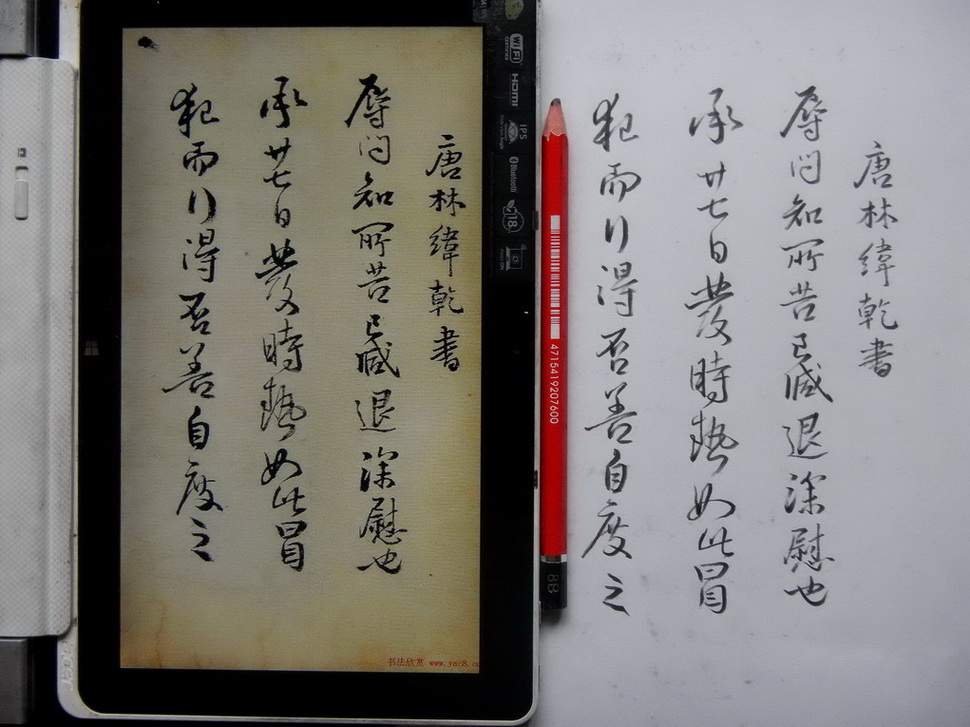 唐林緯乾書
辱問知所苦已減退深慰也
承廿七日發時熱如此冒
犯而行得否善自度之
书法欣赏 www.yac8.co
WiFi
CERTIFIED
HDMI
IPS
Bluetooth
18
4715419207600
8B
唐林緯乾書
辱問知所苦已減退深慰也
承廿七日發時熱如此冒
犯而行得否善自度之